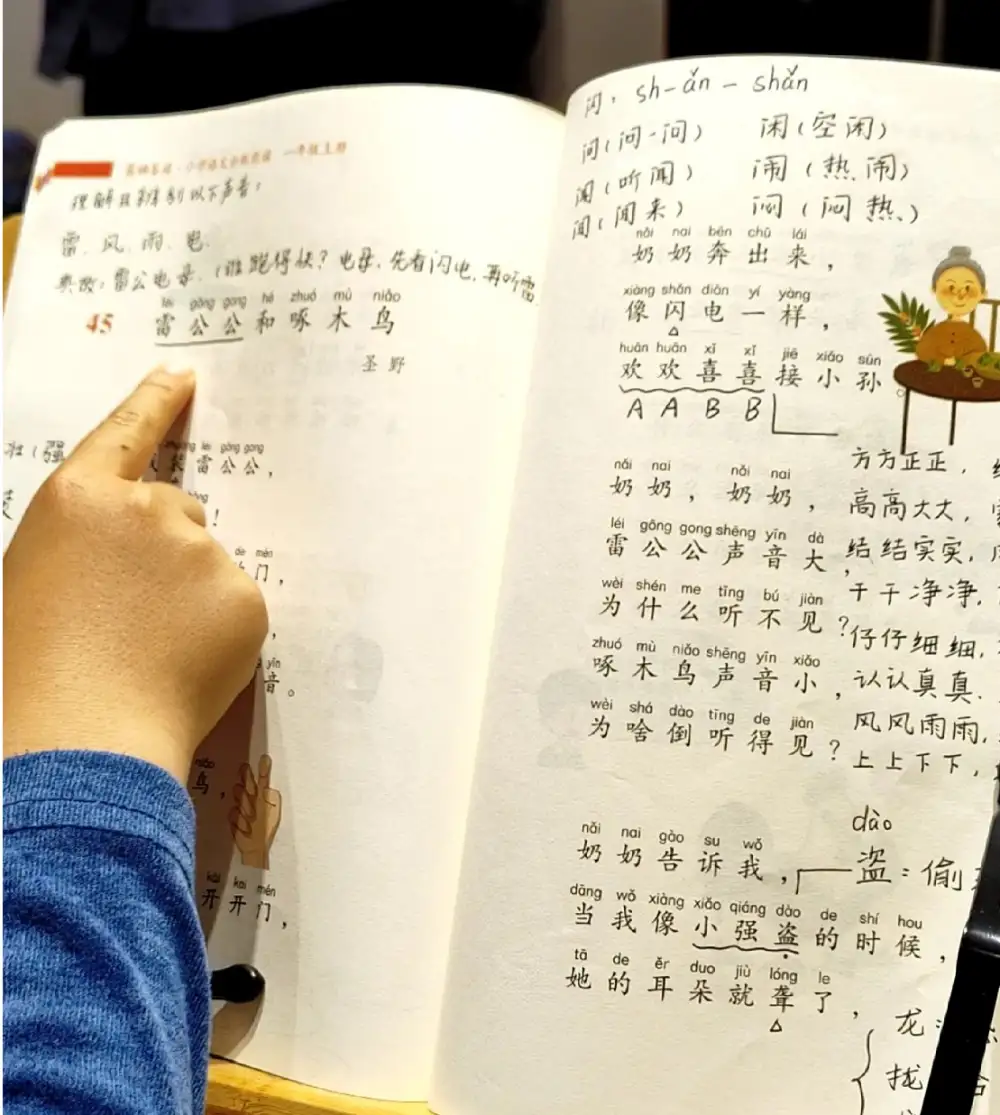 一年级上册
理解且辨别以下声音：
雷、风、雨、电.
典故：雷公电母.（谁跑得快？电母.先看闪电.再听雷
léi gōng gong hé zhuó mù niǎo
45 雷公公和啄木鸟
圣野
壮（强
zhuāng léi gōng gong
装雷公公，
！
de mén
门，
，
yīn
音。
niǎo
鸟，
kāi kai mén
开开门，
闪：sh-ǎn-shǎn
问（问-问） 闲（空闲）
闻（听闻） 闹（热闹）
闻（闻来） 闷（闷热）
nǎi nai bēn chū lái
奶奶奔出来，
xiàng shǎn diàn yí yàng
像闪电一样，
huān huān xǐ xǐ jiē xiǎo sūn
欢欢喜喜接小孙。
A A B B
方方正正，
高高大大，
结结实实，
干干净净，
仔仔细细，
认认真真.
风风雨雨，
上上下下，
nǎi nai nǎi nai
奶奶，奶奶，
léi gōng gong shēng yīn dà
雷公公声音大，
wèi shén me tīng bú jiàn
为什么听不见？
zhuó mù niǎo shēng yīn xiǎo
啄木鸟声音小，
wèi shá dào tīng de jiàn
为啥倒听得见？
dào
盗：偷
nǎi nai gào su wǒ
奶奶告诉我，
dāng wǒ xiàng xiǎo qiáng dào de shí hou
当我像小强盗的时候，
tā de ěr duo jiù lóng le
她的耳朵就聋了，
龙：
拢